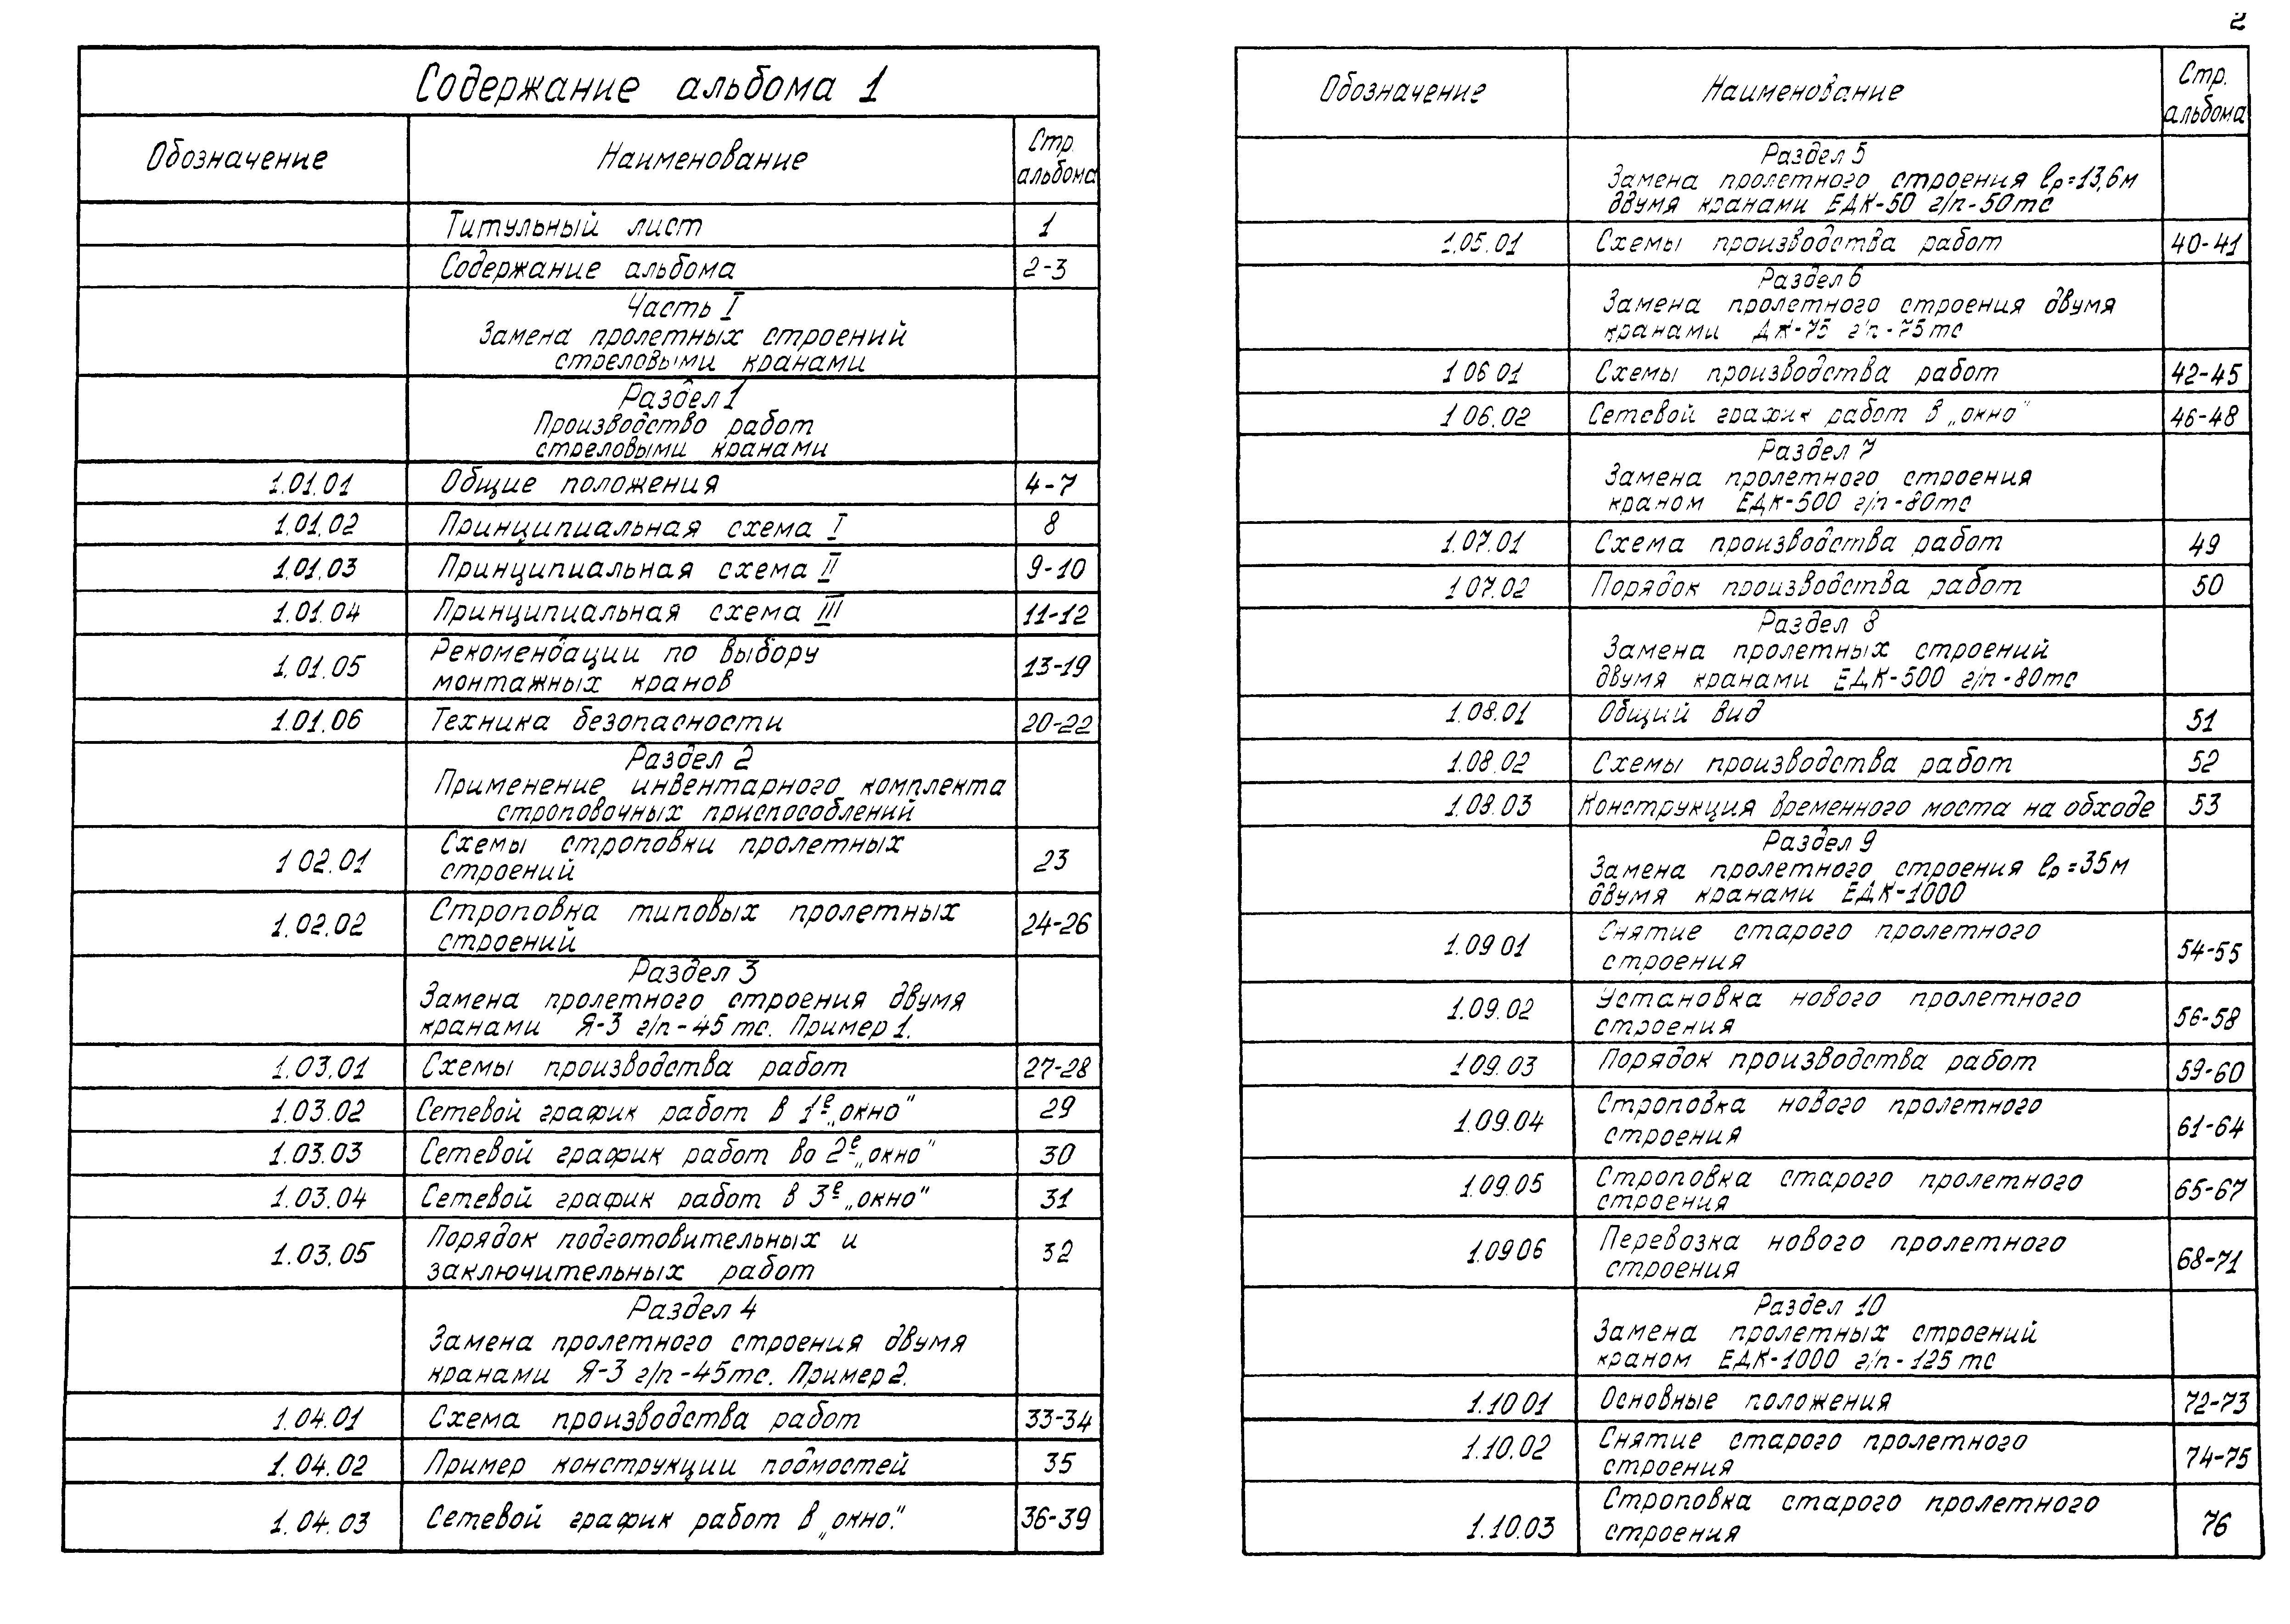 2
Содержание альбома 1
Обозначение Наименование Стр. альбома
Титульный лист 1
Содержание альбома 2-3
Часть I
Замена пролетных строений
стреловыми кранами
Раздел 1
Производство работ
стреловыми кранами
1.01.01 Общие положения 4-7
1.01.02 Принципиальная схема I 8
1.01.03 Принципиальная схема II 9-10
1.01.04 Принципиальная схема III 11-12
1.01.05 Рекомендации по выбору
монтажных кранов 13-19
1.01.06 Техника безопасности 20-22
Раздел 2
Применение инвентарного комплекта
строповочных приспособлений
1 02.01 Схемы строповки пролетных
строений 23
1.02.02 Строповка типовых пролетных
строений 24-26
Раздел 3
Замена пролетного строения двумя
кранами Я-3 г/п-45 тс. Пример 1.
1.03.01 Схемы производства работ 27-28
1.03.02 Сетевой график работ в 1е „окно" 29
1.03.03 Сетевой график работ во 2е „окно" 30
1.03.04 Сетевой график работ в 3е „окно" 31
1.03.05 Порядок подготовительных и
заключительных работ 32
Раздел 4
Замена пролетного строения двумя
кранами Я-3 г/п-45тс. Пример 2.
1.04.01 Схема производства работ 33-34
1.04.02 Пример конструкции подмостей 35
1.04.03 Сетевой график работ в „окно." 36-39
Обозначение Наименование Стр. альбома
Раздел 5
Замена пролетного строения lр=13,6м
двумя кранами ЕДК-50 г/п-50тс
1.05.01 Схемы производства работ 40-41
Раздел 6
Замена пролетного строения двумя
кранами ДЖ-75 г/п-75тс
1 06 01 Схемы производства работ 42-45
1 06.02 Сетевой график работ в „окно" 46-48
Раздел 7
Замена пролетного строения
краном ЕДК-500 г/п-80тс
1.07.01 Схема производства работ 49
1 07.02 Порядок производства работ 50
Раздел 8
Замена пролетных строений
двумя кранами ЕДК-500 г/п-80тс
1.08.01 Общий вид 51
1.08.02 Схемы производства работ 52
1.08.03 Конструкция временного моста на обходе 53
Раздел 9
Замена пролетного строения lр=35м
двумя кранами ЕДК-1000
1.09 01 Снятие старого пролетного
строения 54-55
1.09.02 Установка нового пролетного
строения 56-58
1 09.03 Порядок производства работ 59-60
1.09.04 Строповка нового пролетного
строения 61-64
1.09.05 Строповка старого пролетного
строения 65-67
1.09 06 Перевозка нового пролетного
строения 68-71
Раздел 10
Замена пролетных строений
краном ЕДК-1000 г/п-125 тс
1.10 01 Основные положения 72-73
1.10.02 Снятие старого пролетного
строения 74-75
1.10.03 Строповка старого пролетного
строения 76